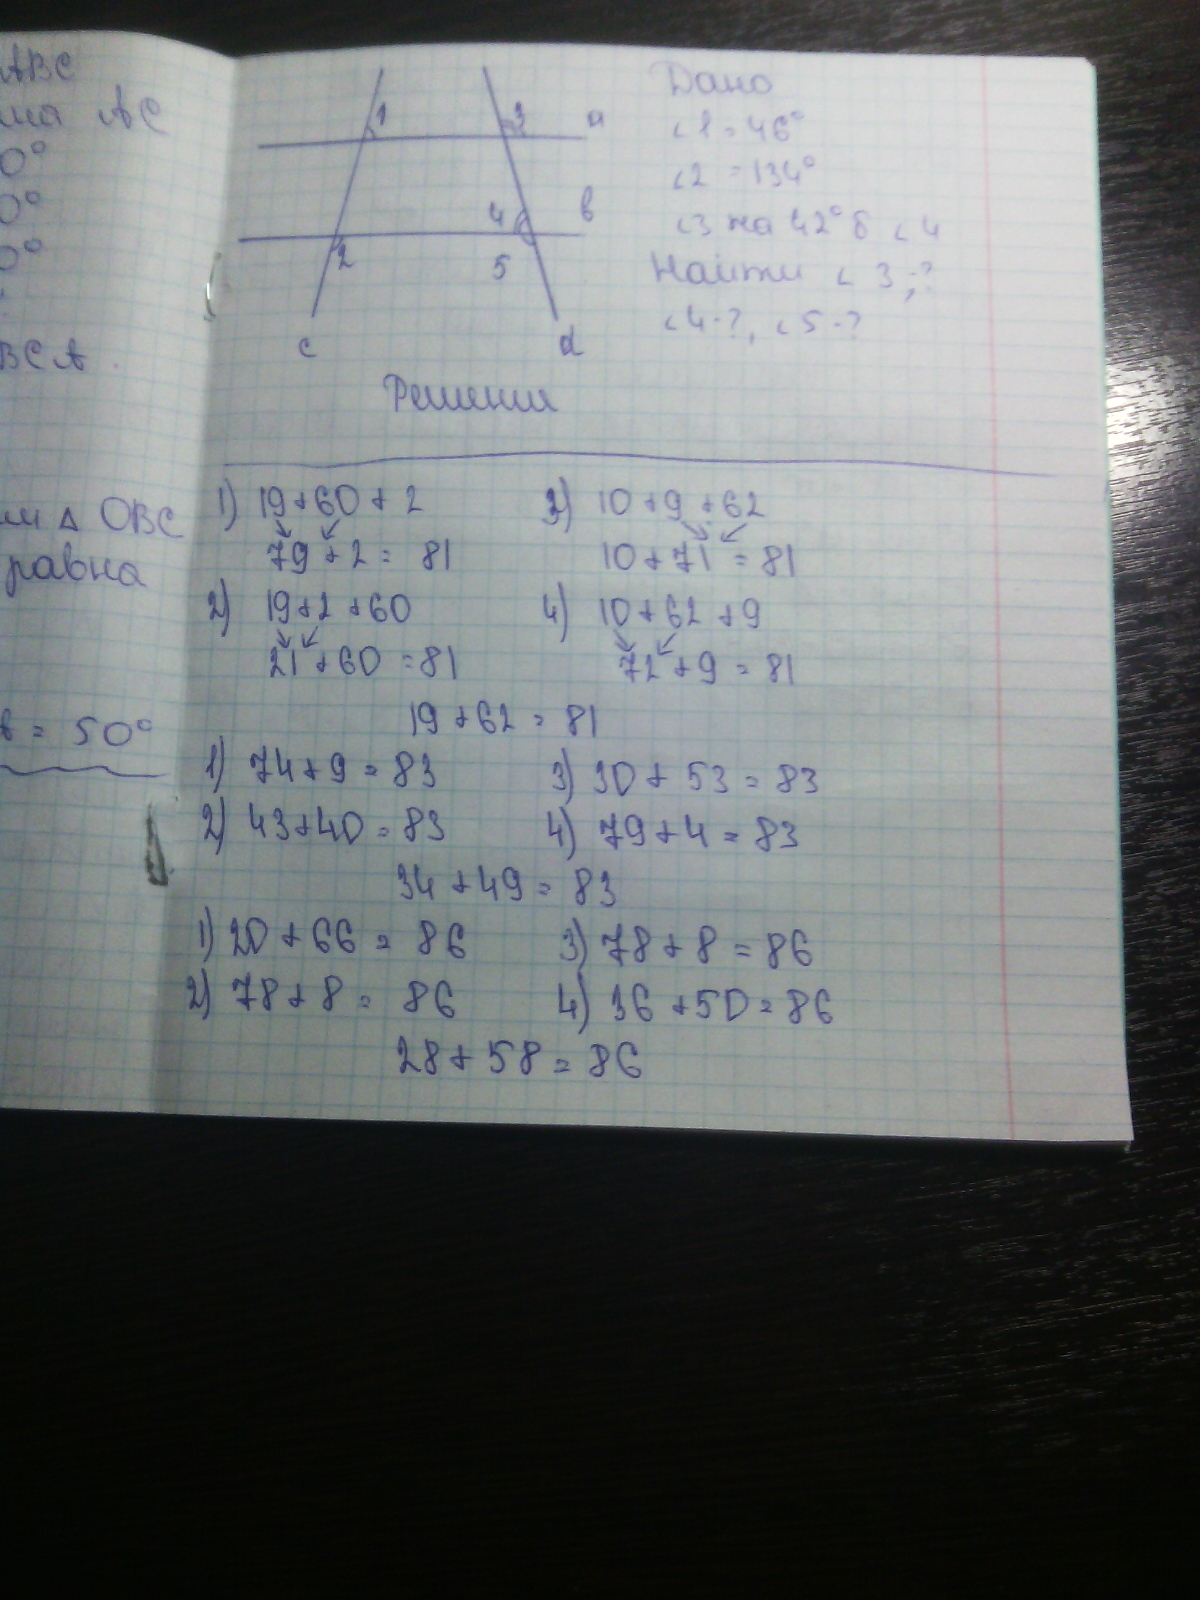 АВС
АС
0°
0°
0°
ВСА.
м △ ОВС
равна
= 50°
1 3 а
4 в
2 5
с d
Дано
∠1 = 46°
∠2 = 134°
∠3 на 42° б ∠4
Найти ∠3,-?
∠4-?, ∠5-?
Решении
1) 19+60+2
79+2= 81
2) 19+2+60
21+60=81
3) 10+9+62
10+71=81
4) 10+62+9
72+9=81
19+62=81
1) 74+9=83
2) 43+40=83
3) 30+53=83
4) 79+4=83
34+49=83
1) 20+66=86
2) 78+8=86
3) 78+8=86
4) 36+50=86
28+58=86